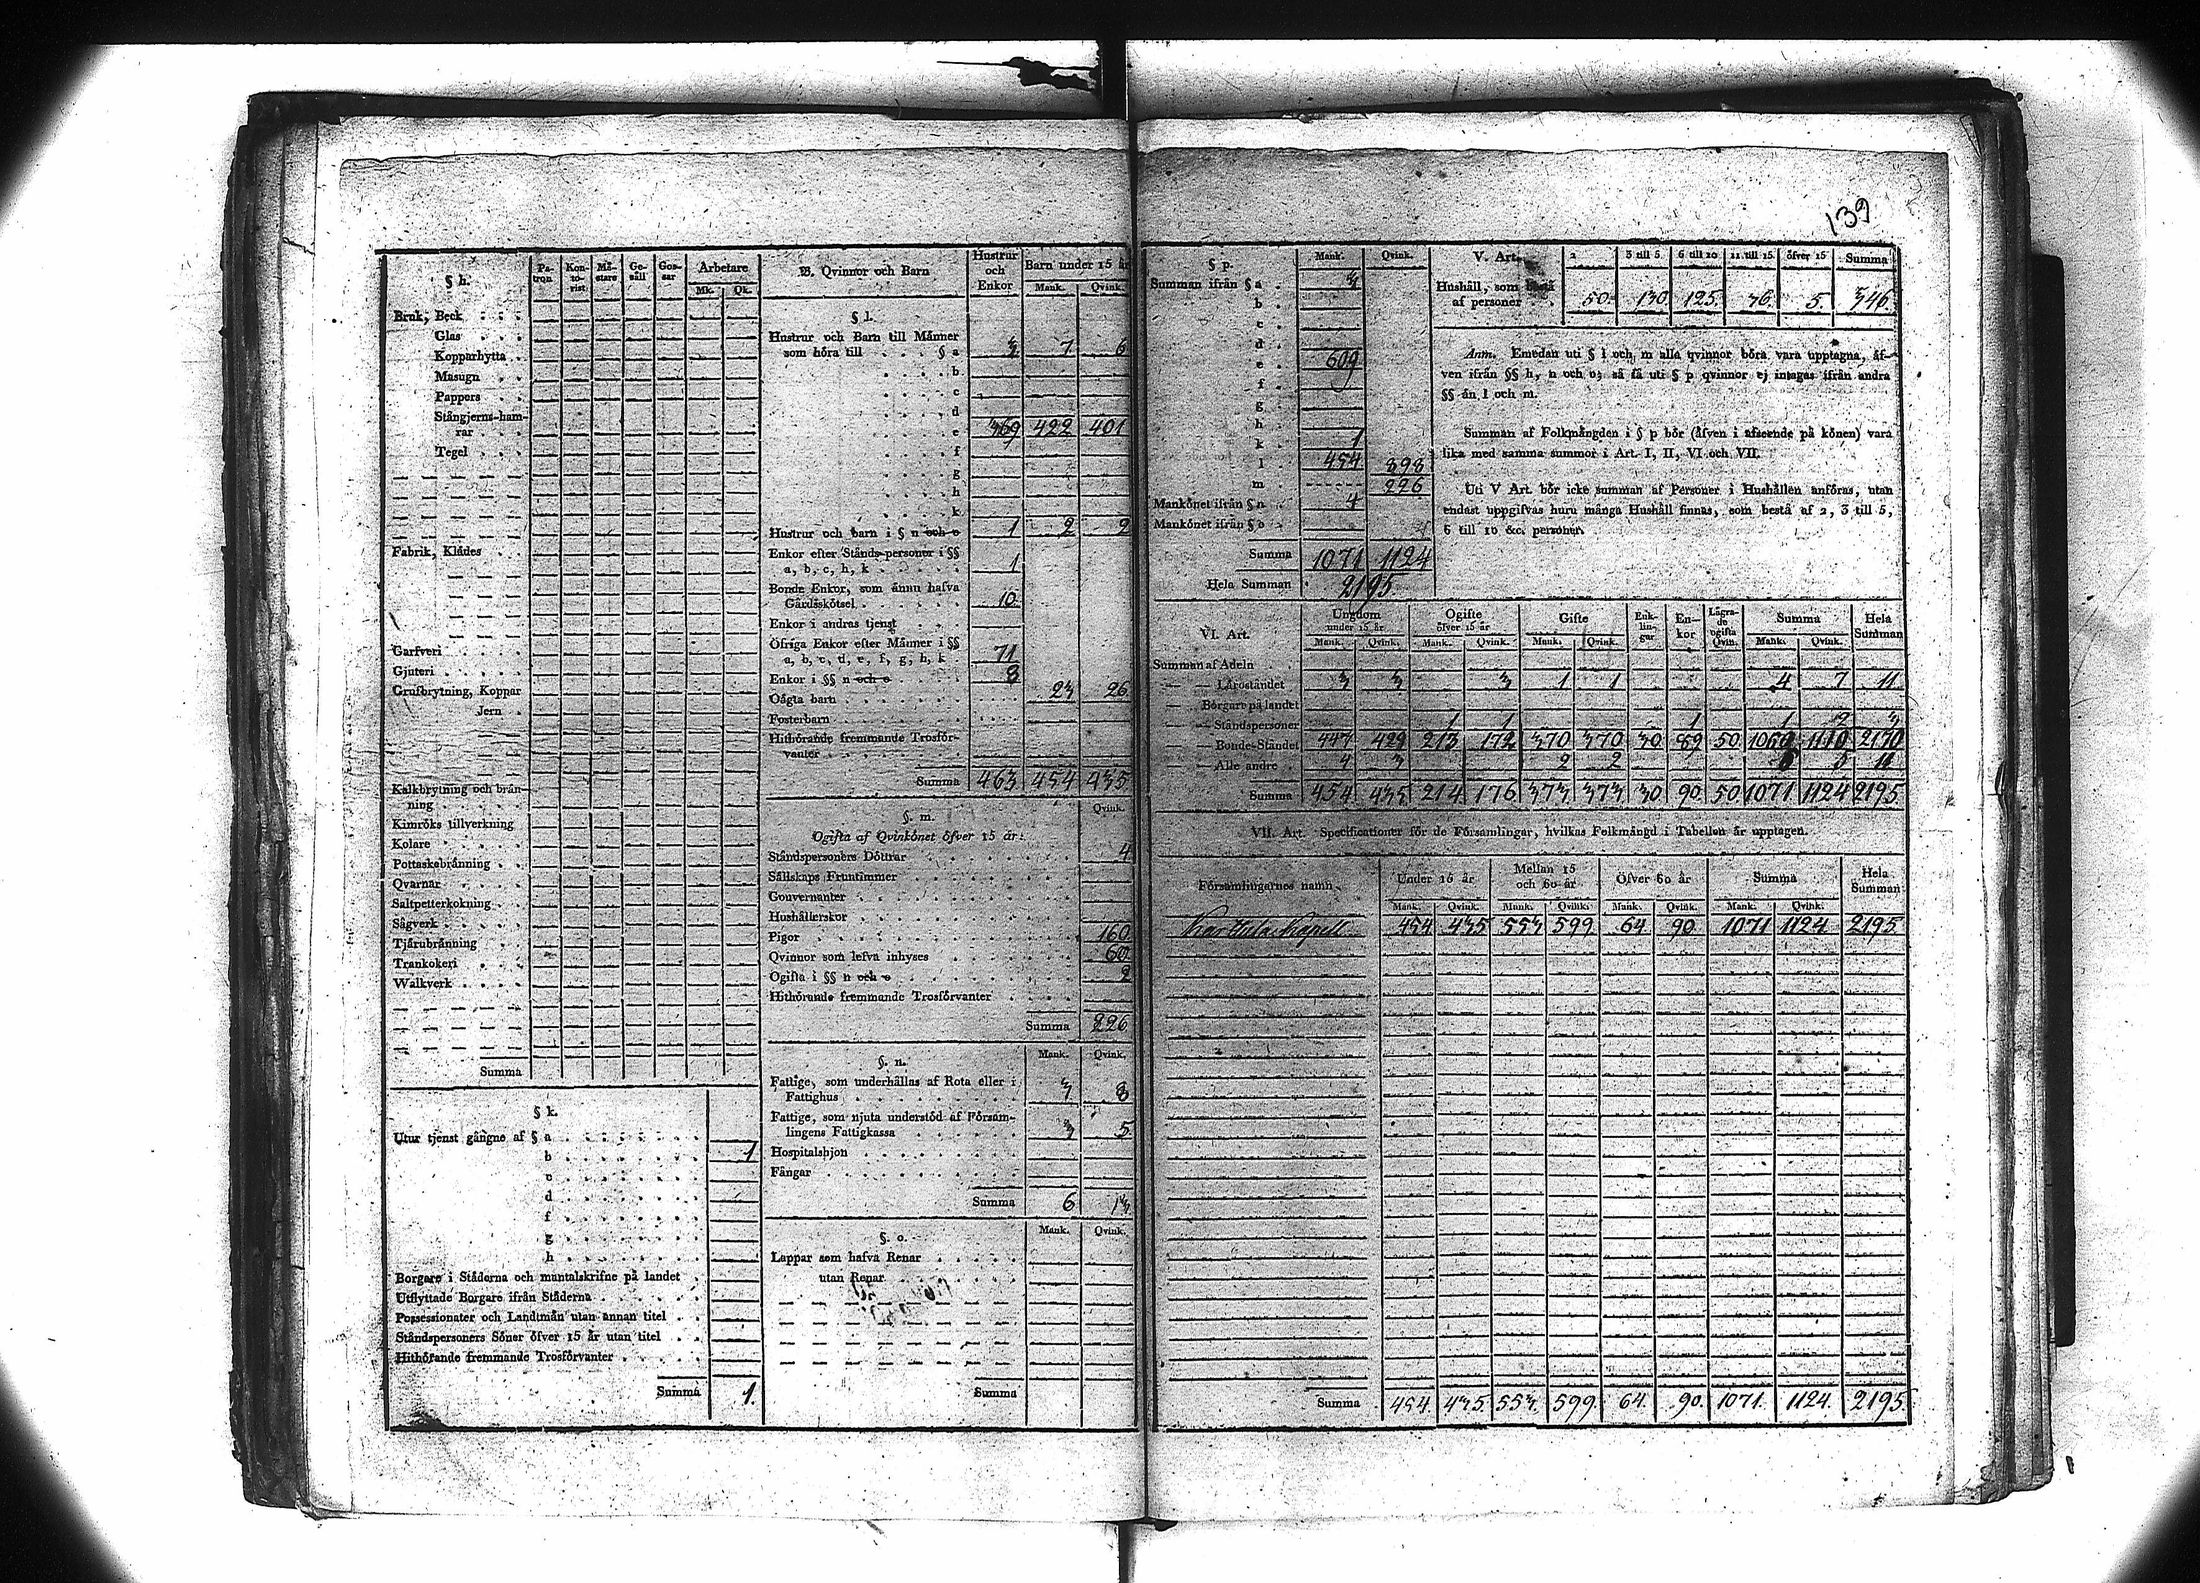 139
§ h.
Patron Kontorist Måstare Gesäll Gossar Arbetare
Mk. Qk.
Bruk, Beck
Glas
Kopparhytta
Masugn
Pappers
Stångjerns-hamrar
Tegel
Fabrik, Klädes
Garfveri
Gjuteri
Grufbrytning, Koppar
Jern
Kalkbrytning och bränning
Kimröks tillverkning
Kolare
Pottaskebränning
Qvarnar
Saltpetterkokning
Sågverk
Tjärubränning
Trankokeri
Walkverk
Summa
§ k.
Utur tjenst gångne af § a
b 1
c
d
f
g
h
Borgare i Städerna och mantalskrifne på landet
Utflyttade Borgare ifrån Städerna
Possessionater och Landtmän utan annan titel
Ståndspersoners Söner öfver 15 år utan titel
Hithörande fremmande Trosförvanter
Summa 1.
B. Qvinnor och Barn
Hustrur och Enkor Barn under 15 år
Mank. Qvink.
§ l.
Hustrur och Barn till Männer
som höra till § a 3 7 6
b
c
d
e 369 422 401
f
g
h
k
Hustrur och barn i § n och o 1 2 2
Enkor efter Stånds-personer i §§
a, b, c, h, k 1
Bonde Enkor, som ännu hafva
Gårdsskötsel 10
Enkor i andras tjenst
Öfriga Enkor efter Männer i §§
a, b, c, d, e, f, g, h, k 71
Enkor i §§ n och o 8
Oägta barn 23 26
Fosterbarn
Hithörande fremmande Trosförvanter
Summa 463 454 435
§. m. Qvink.
Ogifta af Qvinkönet öfver 15 år:
Ståndspersoners Döttrar 4
Sällskaps Fruntimmer
Gouvernanter
Hushållerskor
Pigor 160
Qvinnor som lefva inhyses 60
Ogifta i §§ n och o 2
Hithörande fremmande Trosförvanter
Summa 226
§. n. Mank. Qvink.
Fattige, som underhållas af Rota eller i
Fattighus 3 8
Fattige, som njuta understöd af Församlingens
Fattigkassa 3 5
Hospitalshjon
Fångar
Summa 6 13
§. o. Mank. Qvink.
Lappar som hafva Renar
utan Renar
Summa
§ p. Mank. Qvink.
Summan ifrån § a 3
b
c
d
e 609
f
g
h
k 1
l 454 898
m 226
Mankönet ifrån § n 4
Mankönet ifrån § o
Summa 1071 1124
Hela Summan 2195
V. Art. 2 3 till 5. 6 till 10 11 till 15. öfver 15 Summa
Hushåll, som bestå
af personer 50. 130. 125. 36. 5. 346.
Anm. Emedan uti § l och m alla qvinnor böra vara upptagna, äfven
ifrån §§ h, n och o; så få uti § p qvinnor ej intagas ifrån andra
§§ än l och m.
Summan af Folkmängden i § p bör (äfven i afseende på könen) vara
lika med samma summor i Art. I, II, VI och VII.
Uti V Art. bör icke summan af Personer i Hushållen anföras, utan
endast uppgifvas huru många Hushåll finnas, som bestå af 2, 3 till 5,
6 till 10 &c. personer.
VI. Art. Ungdom under 15 år Ogifte öfver 15 år Gifte Enklingar Enkor Lägrade ogifta Qvin. Summa Hela Summan
Mank. Qvink. Mank. Qvink. Mank. Qvink. Mank. Qvink.
Summan af Adeln
— — Läroståndet 3 3 3 1 1 4 7 11
— — Borgare på landet
— — Ståndspersoner 1 1 1 1 2 3
— — Bonde-Ståndet 447 429 213 172 370 370 30 89 50 1060 1110 2170
— — Alle andre 4 3 2 2 6 5 11
Summa 454 435 214 176 373 373 30 90 50 1071 1124 2195
VII. Art. Specificationer för de Församlingar, hvilkas Folkmängd i Tabellen är upptagen.
Församlingarnes namn. Under 16 år Mellan 15 och 60 år Öfver 60 år Summa Hela Summan
Mank. Qvink. Mank. Qvink. Mank. Qvink. Mank. Qvink.
Karttula Kapell 454 435 553 599 64 90 1071 1124 2195
Summa 454. 435. 553. 599. 64. 90. 1071. 1124. 2195.